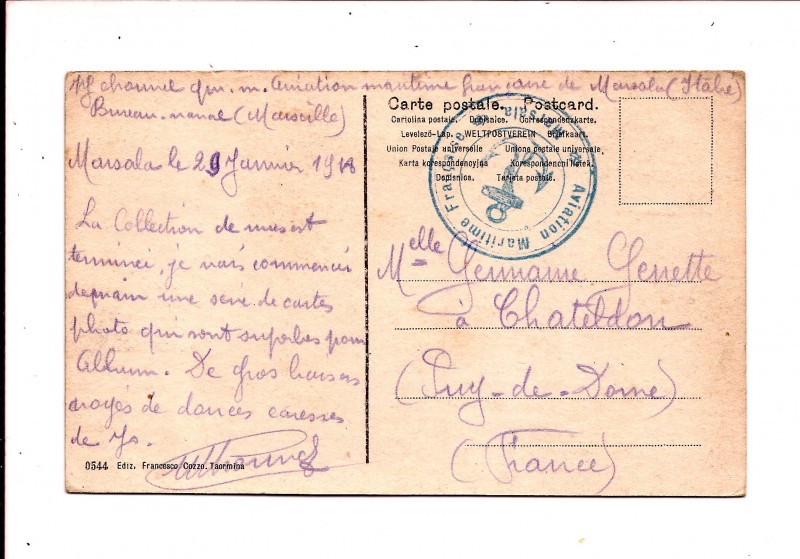 channel qu. m. Aviation maritime française de Marsala (Italie)
Bureau naval (Marseille)
Marsala le 29 Janvier 1918
La Collection de mus est
terminée, je vais commencer
demain une serie de cartes
photo qui sont superbes pour
Album. De gros baisers
noyés de douces caresses
de
0544 Ediz. Francesco Cozzo. Taormina
Carte postale. Postcard.
Cartolina postale. Dopisnice. Correspondenzkarte.
Levelező-Lap. WELTPOSTVEREIN Brefkaart
Union Postale universelle Unione postale universale
Karta korespondencyjna Korespondencni listek.
Dopisnica. Tarjeta postale.
Aviation Maritime Française Marsala
Melle Germaine Genette
à Chateldon
(Puy-de-Dome)
(France)